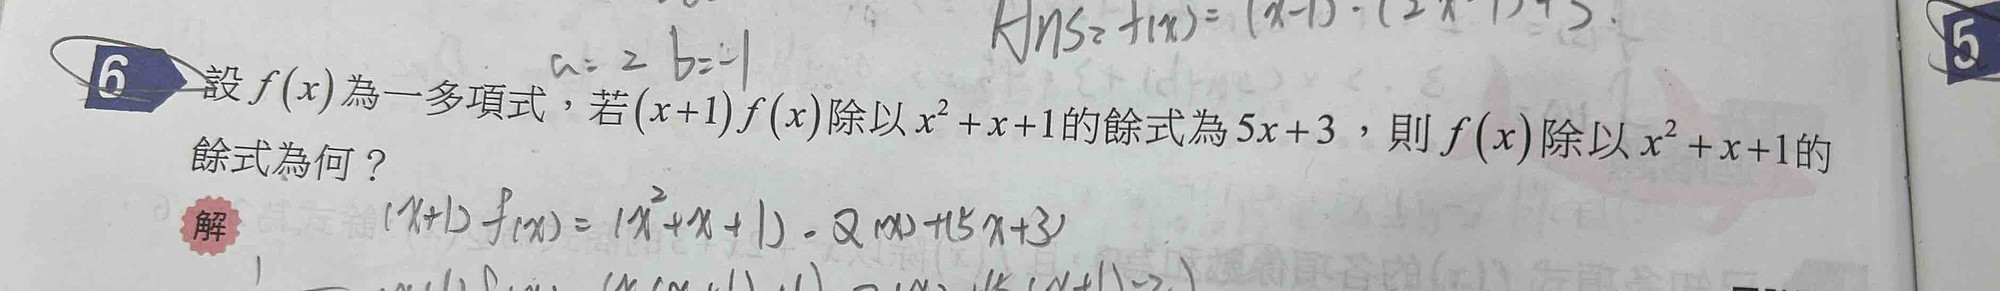 Ans= f(x) = (x-1)·(2x-1)+3.
a = 2 b = -1
6 設 f(x) 為一多項式，若(x+1) f(x)除以 x²+x+1的餘式為 5x+3，則 f(x)除以 x²+x+1的
餘式為何？
解 (x+1) f(x) = (x²+x+1)·Q(x)+(5x+3)
5